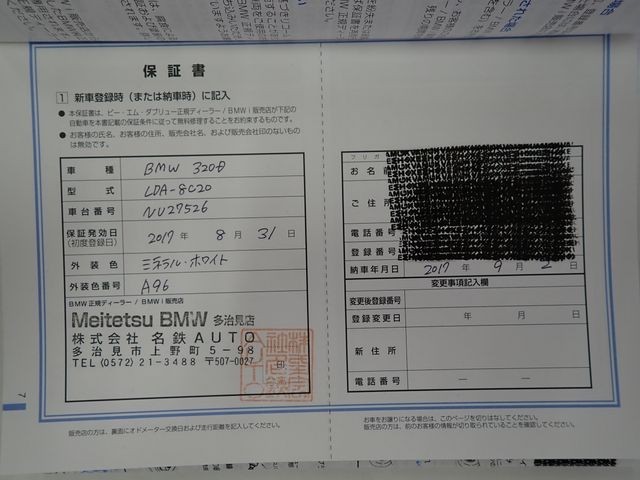 保証書
1 新車登録時（または納車時）に記入
● 本保証書は、ビー・エム・ダブリュー正規ディーラー/BMW i 販売店が下記の
自動車を本書記載の保証条件に従って無料修理することをお約束するものです。
● お客様の氏名、お客様の住所、販売会社名、および販売会社印のないもの
は無効です。
車種 BMW 320d
型式 LDA-8C20
車台番号 NU27526
保証発効日
(初度登録日) 2017 年 8 月 31 日
外装色 ミネラル・ホワイト
外装色番号 A96
BMW 正規ディーラー / BMW i 販売店
Meitetsu BMW 多治見店
株式会社 名鉄AUTO
多治見市上野町5-98
TEL(0572)21-3488 〒507-0027
印
フリガ
お名前
ご住所
電話番号
登録番号
納車年月日 2017 年 9 月 2 日
変更事項記入欄
変更後登録番号
登録変更日 年 月 日
新住所
電話番号 ー ー
7
販売店の方は、裏面にオドメーター交換日および走行距離を記入してください。
お車をお譲りになる場合は、このページを切りはなしてください。
販売店の方は、前のお客様の情報が切り取られていることを確認してください。